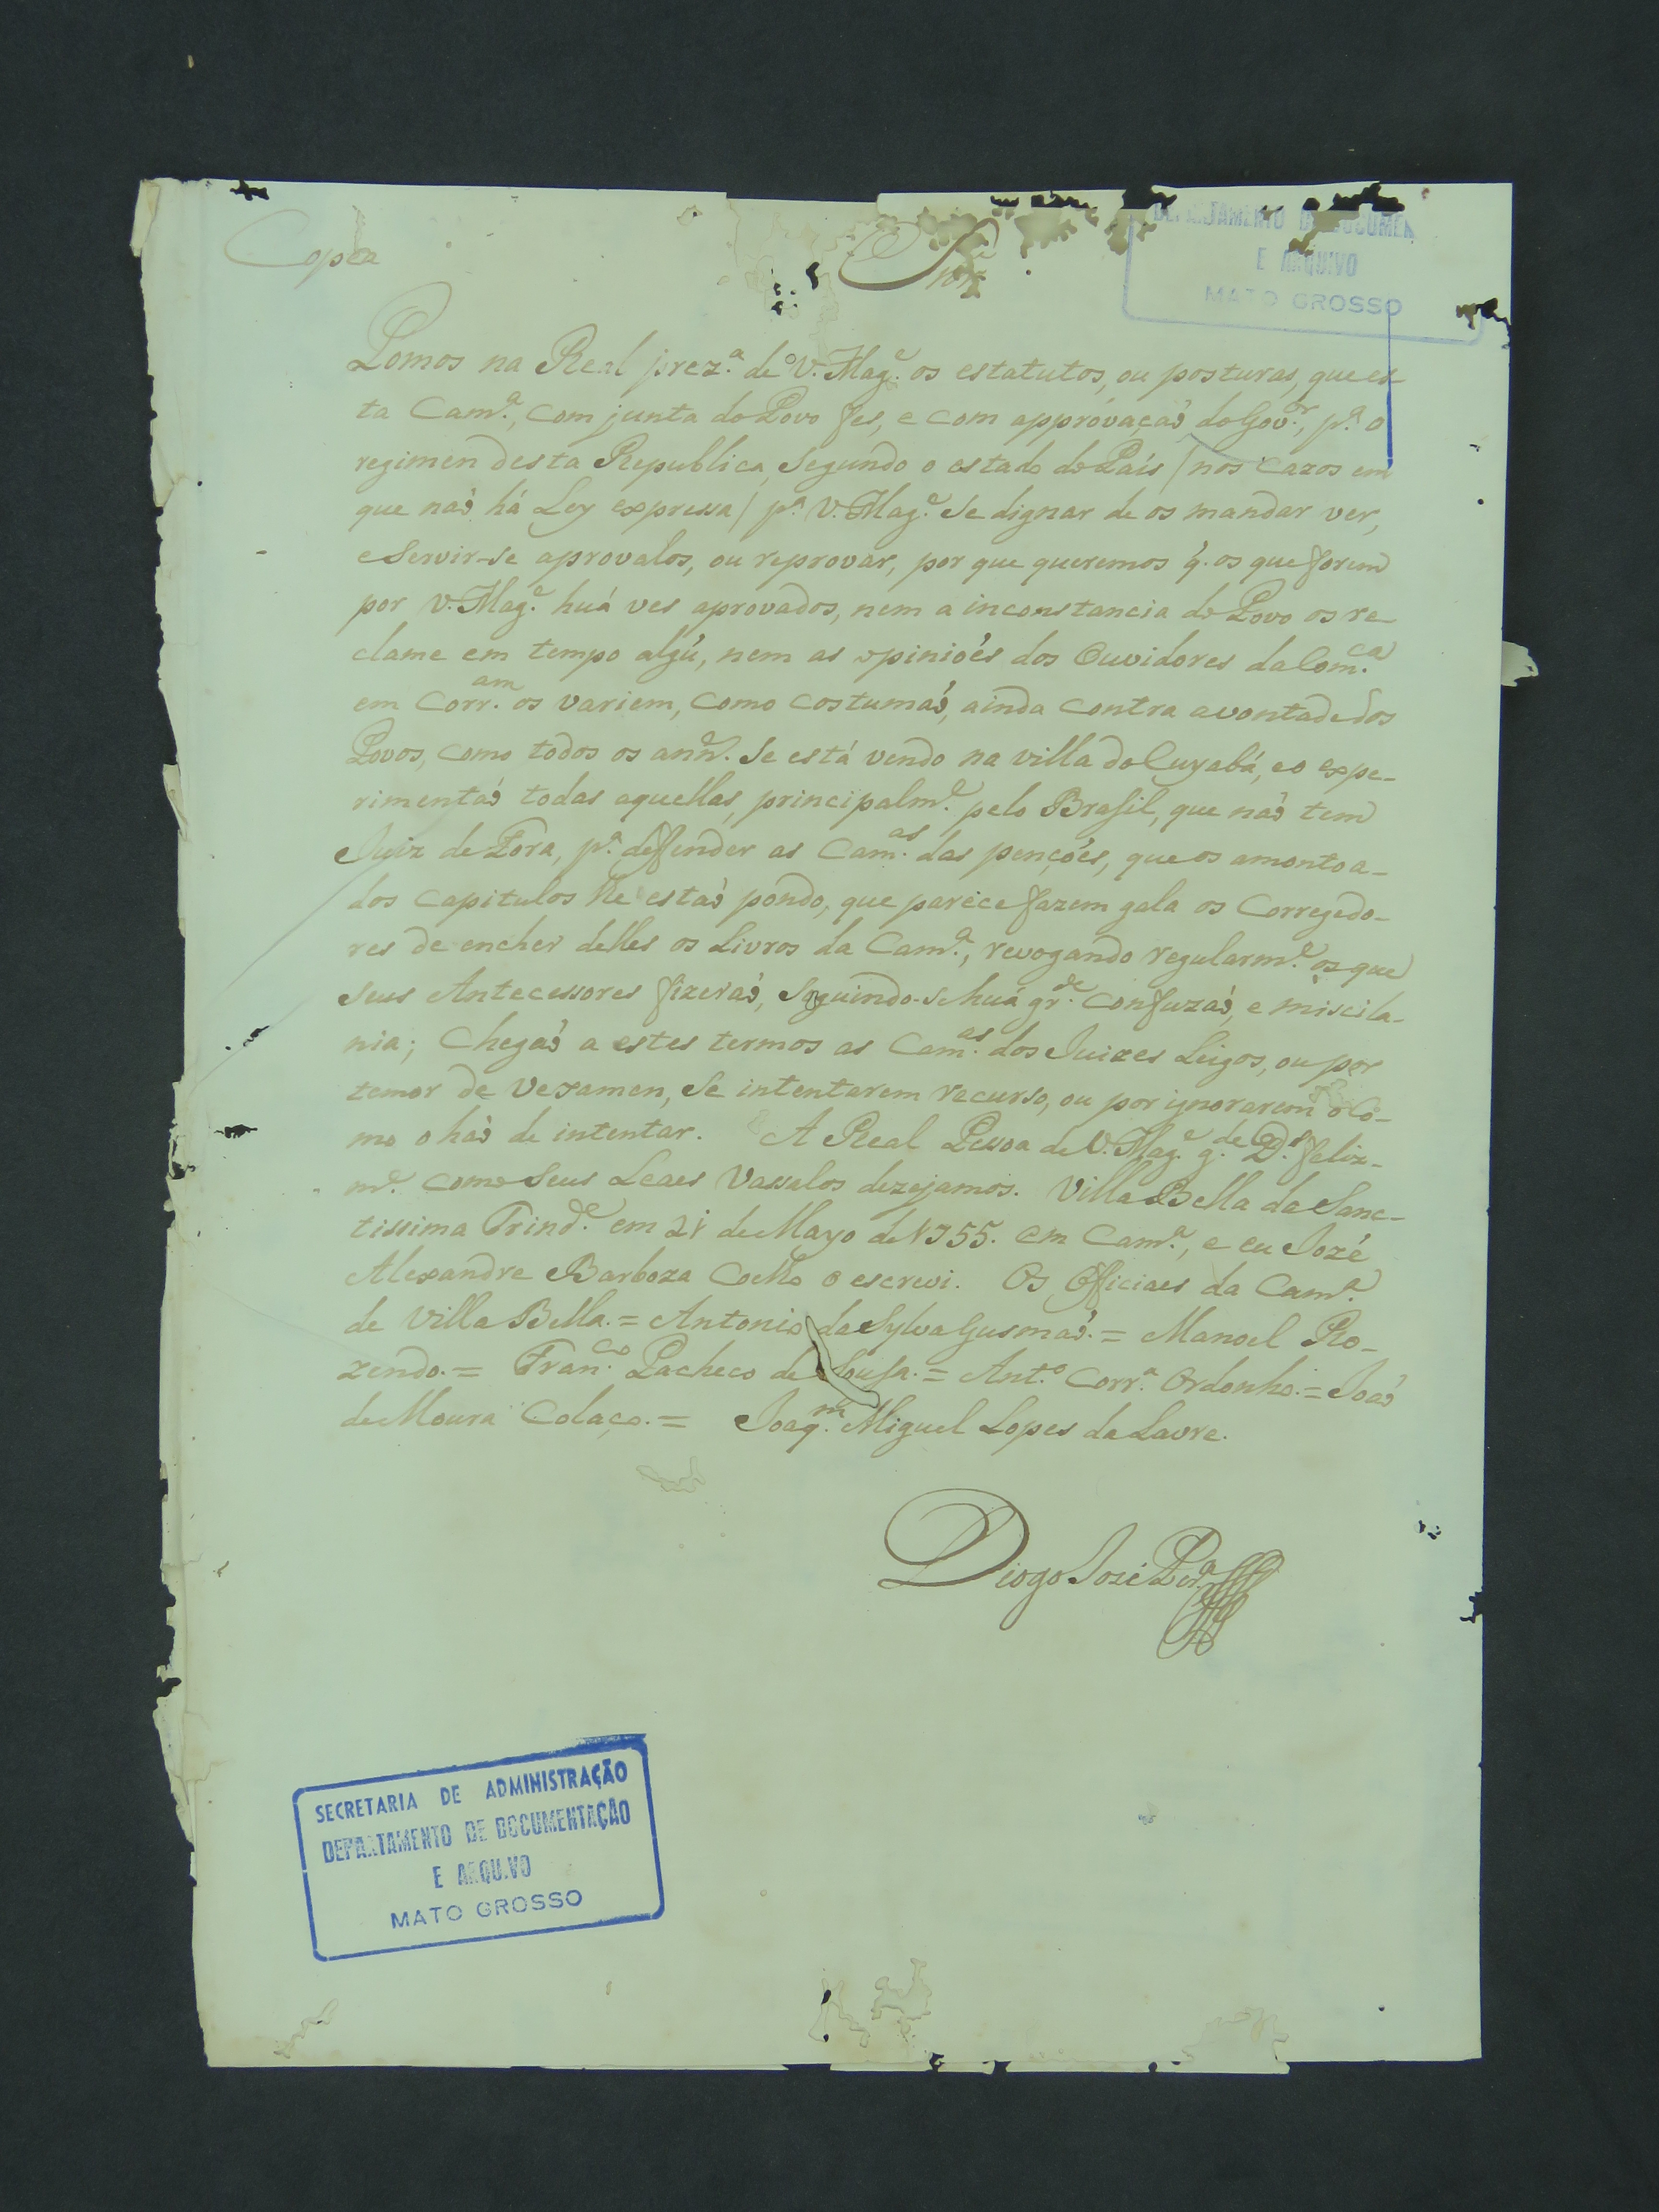 Copea
Snor
DEPARTAMENTO DE DOCUMEN
E ARQUIVO
MATO GROSSO
Pomos na Real prez.ª de V. Mag.e os estatutos, ou posturas, que es
ta Cam.ª, com junta do Povo fes, e com approvaçaõ do Gov.or, p.ª o
regimen desta Republica, segundo o estado do País / nos cazos em
que naõ há Ley expressa / p.ª V. Mag.e se dignar de os mandar ver,
e servir-se aprovalos, ou reprovar, por que queremos q̃. os que forem
por V. Mag.e huá ves aprovados, nem a inconstancia do Povo os re
clame em tempo algú, nem as opinioẽs dos Ouvidores da Com.ca
em Corr.am os variem, como costumaõ, ainda contra a vontade dos
Povos, como todos os ann.os se está vendo na villa do Cuyabá, e o expe-
rimentaõ todas aquellas, principalm.e pelo Brasil, que naõ tem
Juiz de Fora, p.ª deffender as Cam.as das pençoẽs, que os amontoa-
dos capitulos lhe estaõ pondo, que parece fazem gala os Corregedo-
res de encher delles os Livros da Cam.ª, revogando regularm.e os que
seus Antecessores fizeraõ, seguindo-se huá gr.de confuzaõ, e miscila-
nia; Chegaõ a estes termos as Cam.as dos Juizes Leigos, ou por
temor de vexamen, se intentarem recurso, ou por ignorarem o Co-
mo o haõ de intentar. A Real Pessoa de V. Mag.e g.de D.s feliz-
m.e como seus Leaes Vassalos dezejamos. Villa Bella da Sanc-
tissima Trind.e em 21 de Mayo de 1755. em Cam.ª, e eu Jozé
Alexandre Barboza Coelho o escrevi. Os Officiaes da Cam.ª
de Villa Bella. = Antonio da Sylva Gusmaõ. = Manoel Ro-
zendo. = Fran.co Pacheco de Sousa. = Ant.o Corr.ª Ordonho. = Joaõ
de Moura Colaço. = Joaq.m Miguel Lopes da Lavre.
Diogo José Per.ª
SECRETARIA DE ADMINISTRAÇÃO
DEPARTAMENTO DE DOCUMENTAÇÃO
E ARQUIVO
MATO GROSSO